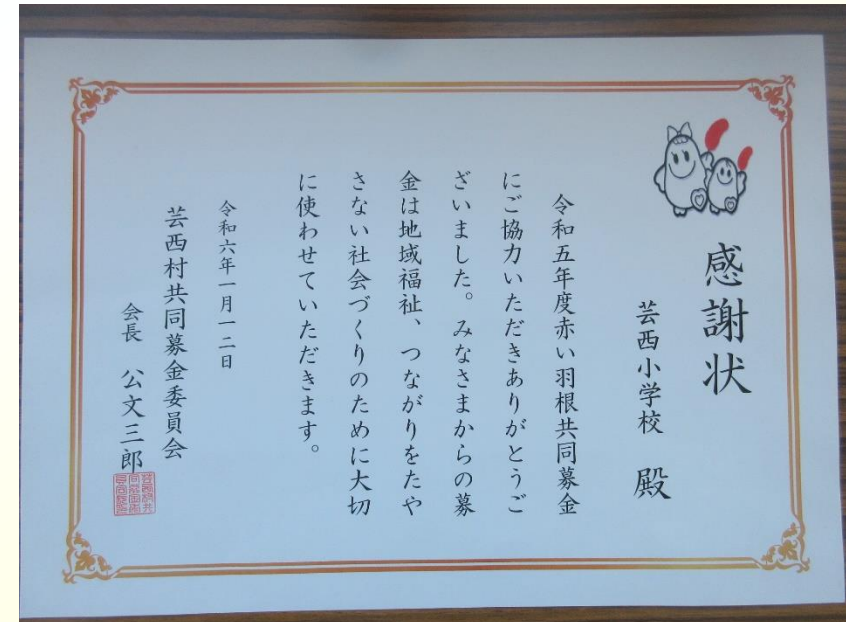 感謝状
芸西小学校 殿
令和五年度赤い羽根共同募金
にご協力いただきありがとうご
ざいました。みなさまからの募
金は地域福祉、つながりをたや
さない社会づくりのために大切
に使わせていただきます。
令和六年一月一二日
芸西村共同募金委員会
会長 公文三郎